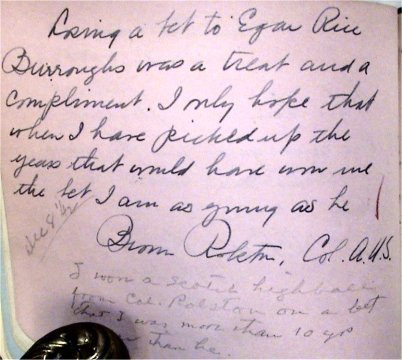 Losing a bet to Egar Rice
Burroughs was a treat and a
compliment. I only hope that
when I have picked up the
years that would have won me
the bet I am as young as he
Dec 8 '42
Brown Rolston, Col. A.U.S.
I won a scotch highball
from Col. Rolston on a bet
that I was more than 10 yrs
than he.